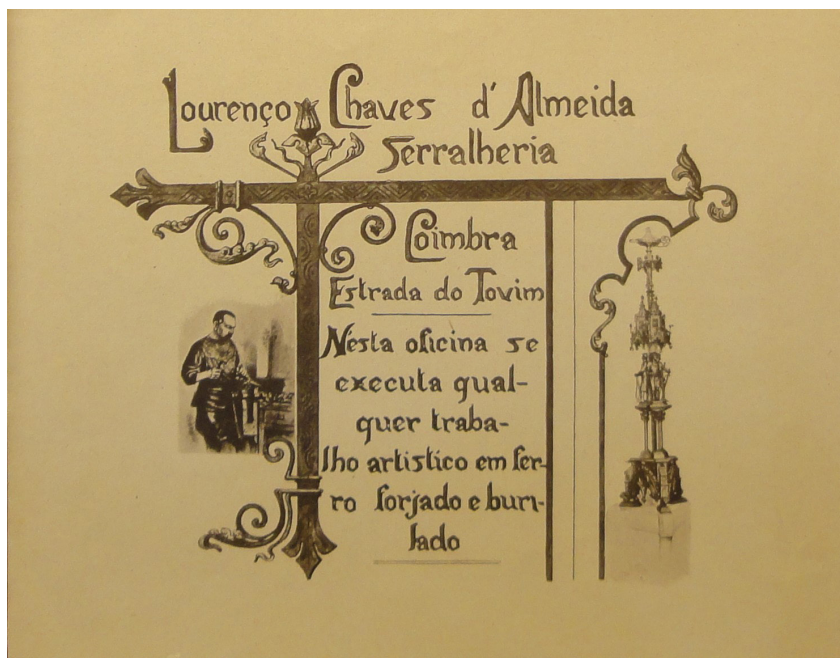 Lourenço Chaves d'Almeida
Serralheria
Coimbra
Estrada do Tovim
Nésta oficina se
executa qual-
quer traba-
lho artistico em fer-
ro forjado e buri-
lado